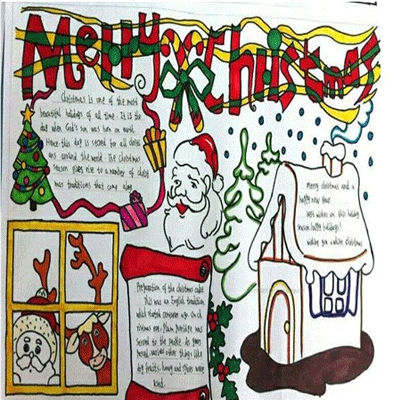 Merry Christmas
Christmas is one of the most
beautiful holidays of all time. It is the
day when God's son was born on earth.
Hence this day is sacred for all
around the world. The Christmas
season gives rise to a number of
traditions that came
Merry christmas and a
happy new year.
Best wishes on this holiday
season, happy holidays!
wishing you a white christmas.
Preparation of the christmas cake
This was an English tradition,
which started
Plain porridge was
served to the people. As years
passed, various other things like
dry fruits, honey and spices were